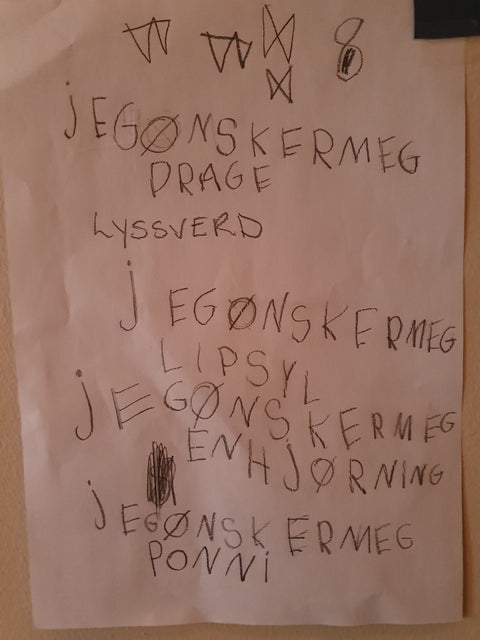 jEGØNSKERMEG
DRAGE
LYSSVERD
jEGØNSKERMEG
LIPSYL
jEGØNSKERMEG
ENHjØRNING
jEGØNSKERMEG
PONNi